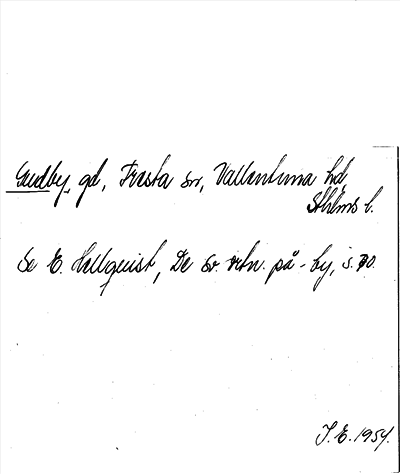 Gudby, gd, Fresta sn, Vallentuna hd,
Sthlms l.
Se E. Hellquist, De sv. ortn. på -by, s. 30.
J. E. 1954.